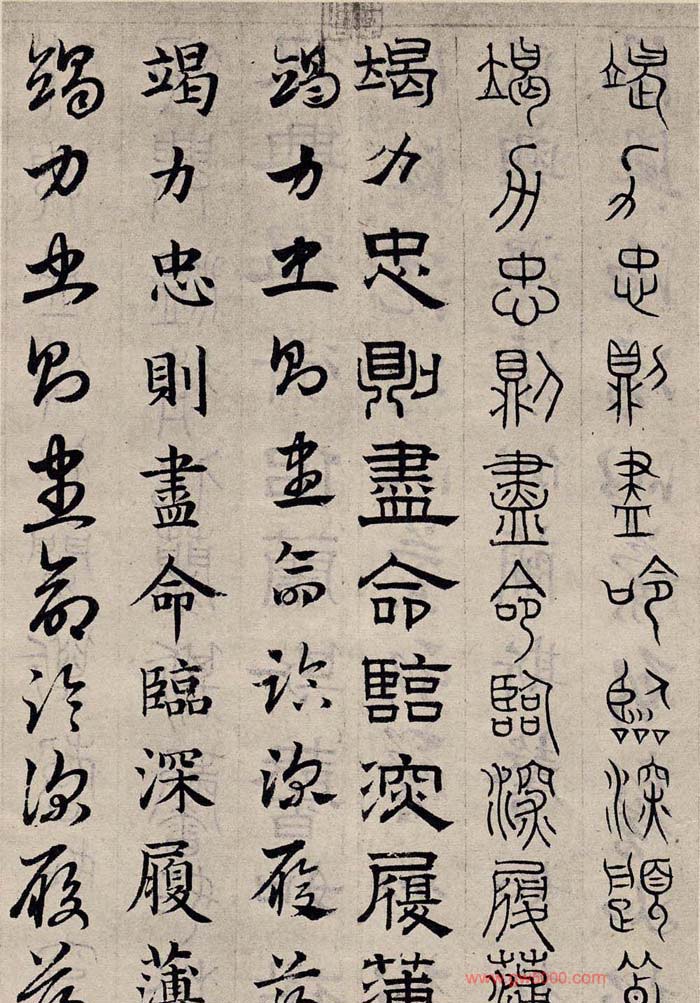 竭力忠則盡命臨深履薄
竭力忠則盡命臨深履薄
竭力忠則盡命臨深履薄
竭力忠則盡命臨深履薄
竭力忠則盡命臨深履薄
竭力忠則盡命臨深履薄